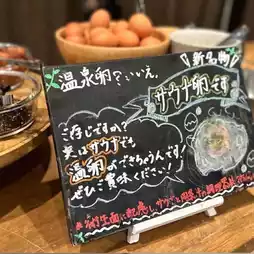 温泉卵?いいえ、
新名物
サウナ卵です
ご存じですか?
実はサウナでも
温卵ができちゃうんです!
ぜひご賞味ください!
※衛生面に配慮し、サウナと同条件の調理器具